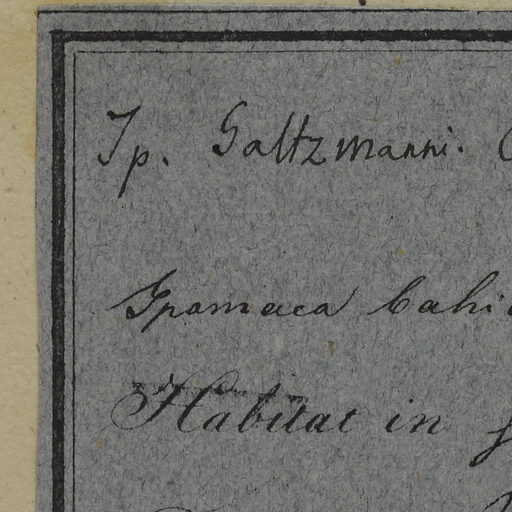 Ip. Saltzmanni.
Ipomaea bahi
Habitat in